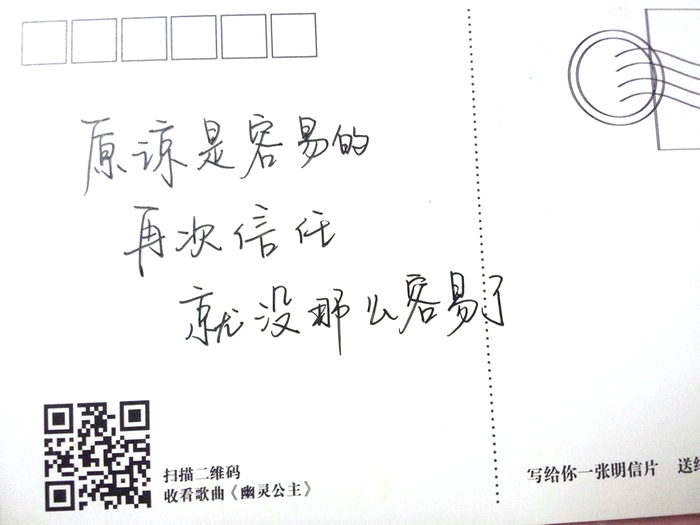 原谅是容易的
再次信任
就没那么容易了
扫描二维码
收看歌曲《幽灵公主》
写给你一张明信片 送给